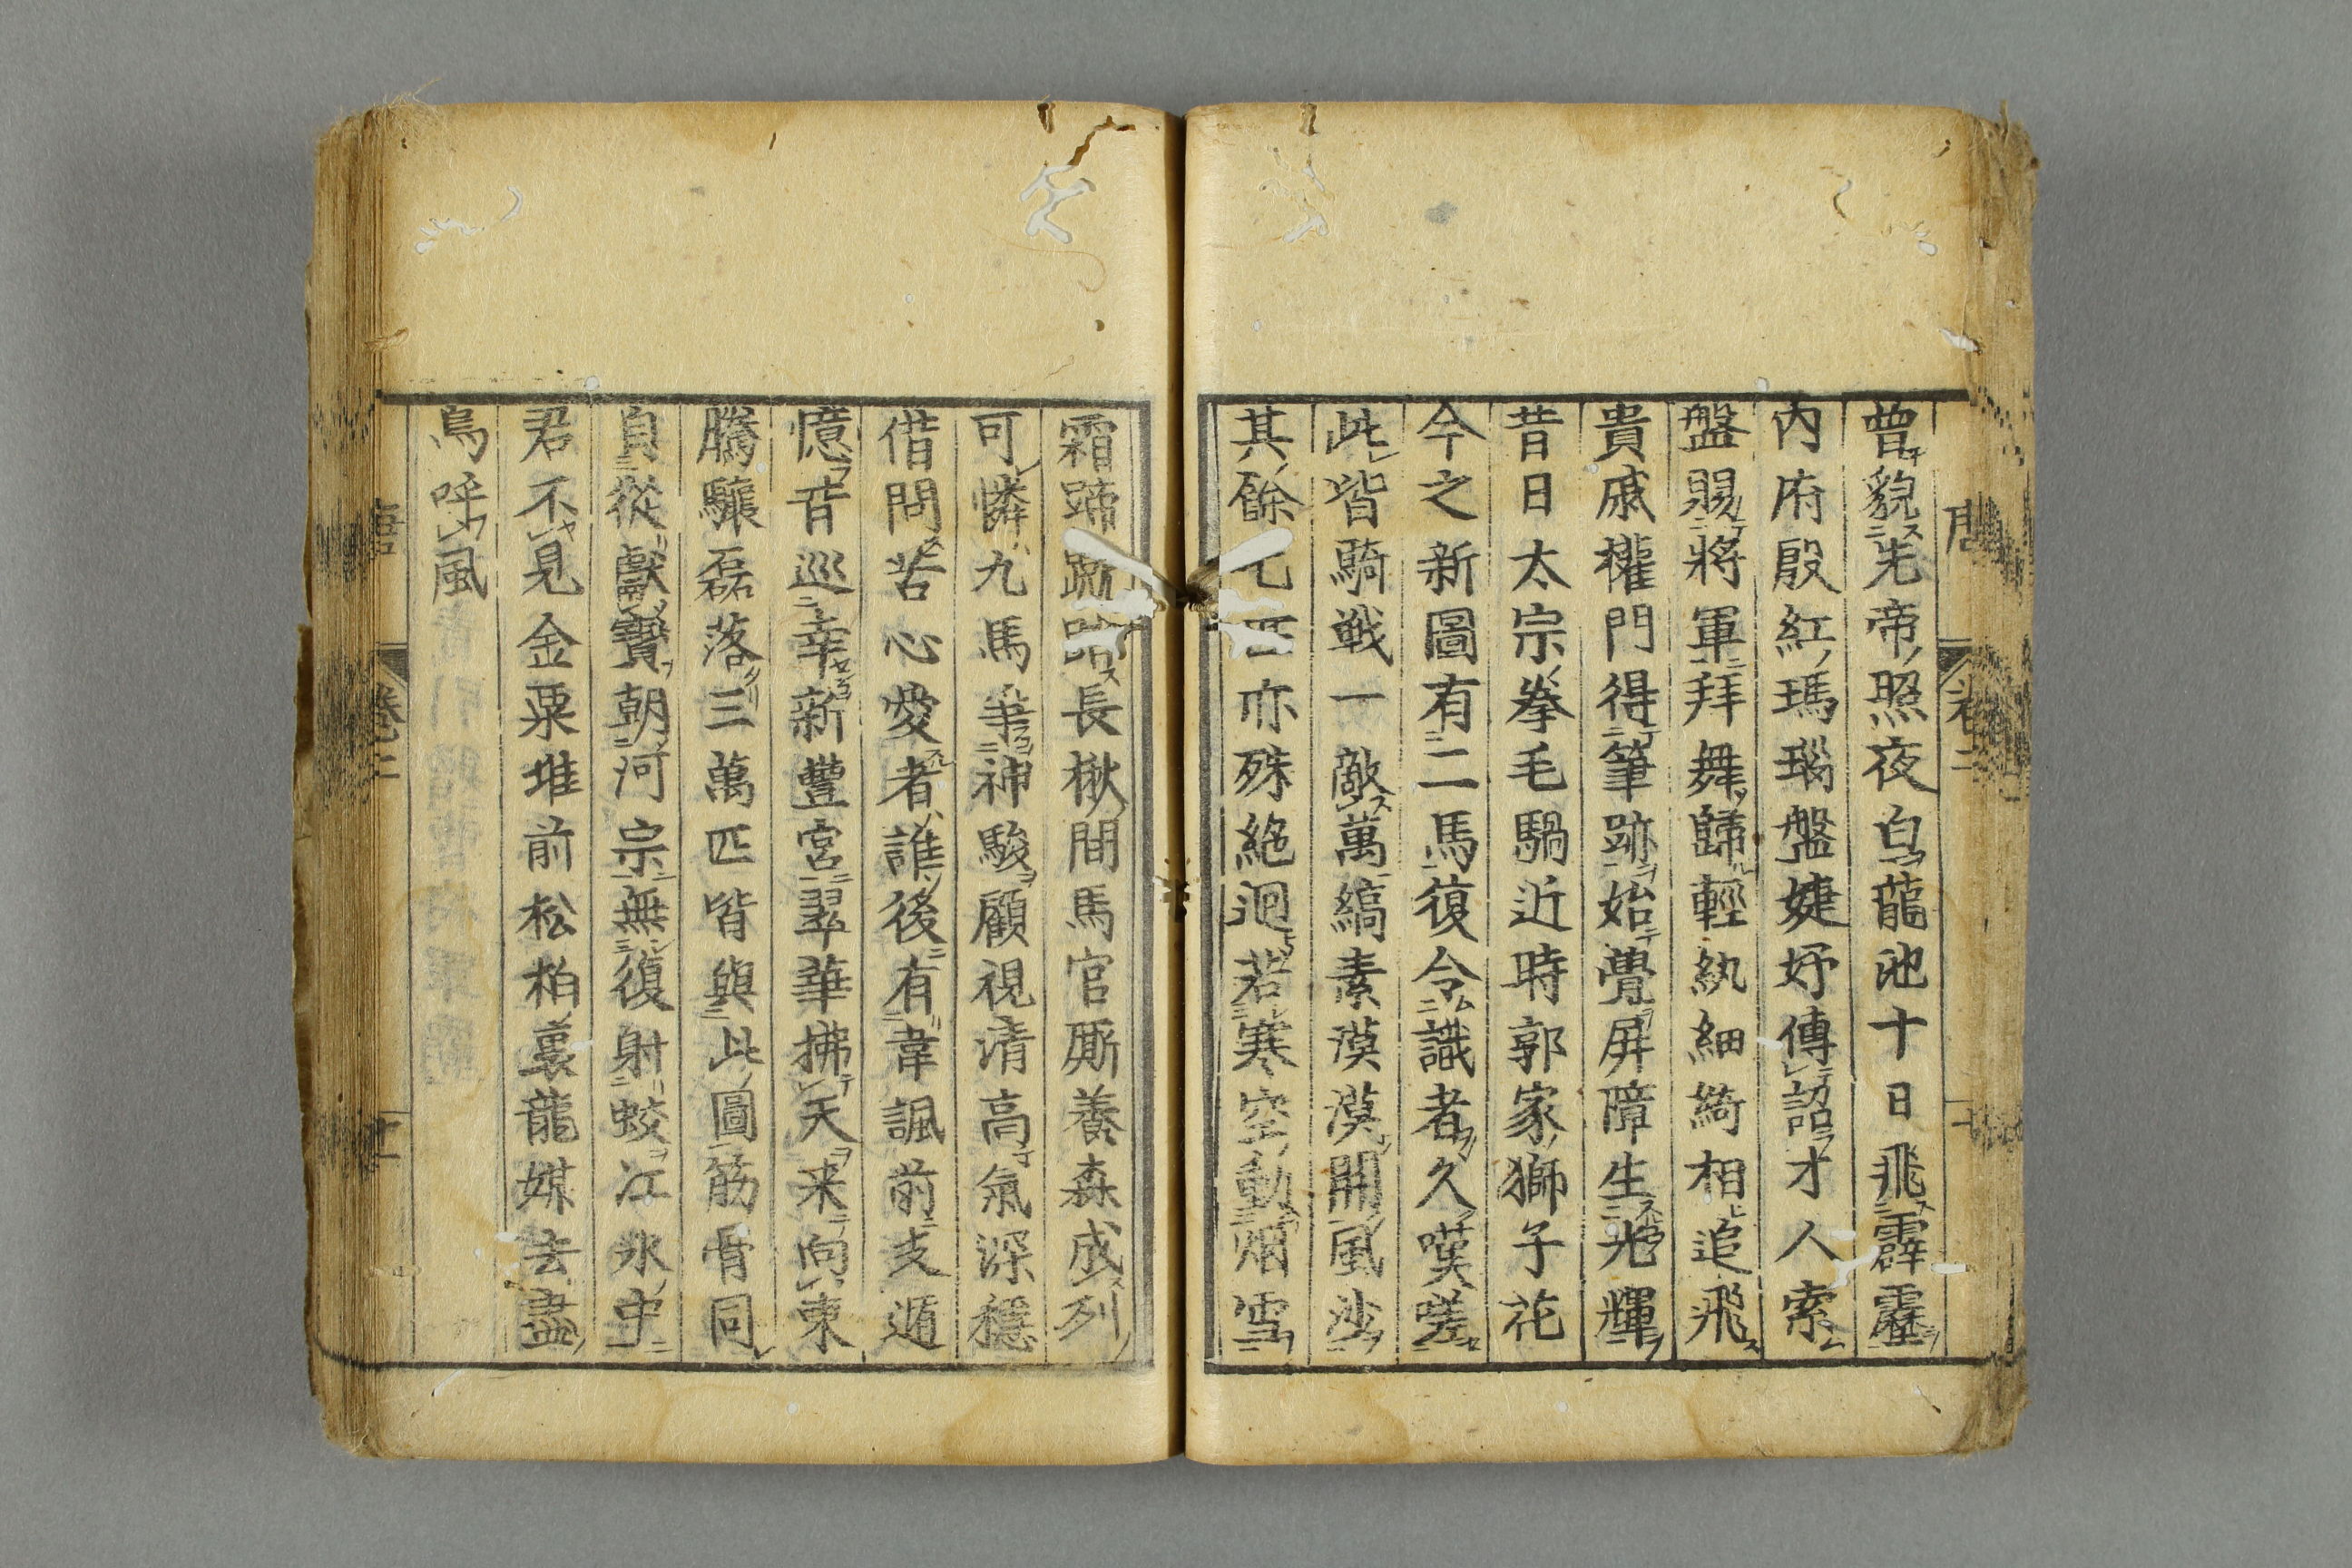 曽貌先帝照夜白龍池十日飛霹靂
内府殷紅瑪瑙盤婕妤傳詔才人索
盤賜將軍拜舞歸輕紈細綺相追飛
貴戚權門得筆跡始覺屏障生光輝
昔日太宗拳毛騧近時郭家獅子花
今之新圖有二馬復令識者久嘆嗟
此皆騎戦一敵萬縞素漠漠開風沙
其餘七匹亦殊絶迥若寒空動烟雪
霜蹄蹴踏長楸間馬官厮養森成列
可憐九馬爭神駿顧視清高氣深穩
借問苦心愛者誰後有韋諷前支遁
憶昔巡幸新豐宮翠華拂天来向東
騰驤磊落三萬匹皆與此圖筋骨同
自從獻寶朝河宗無復射蛟江水中
君不見金粟堆前松柏裏龍媒去盡
鳥呼風
卷二